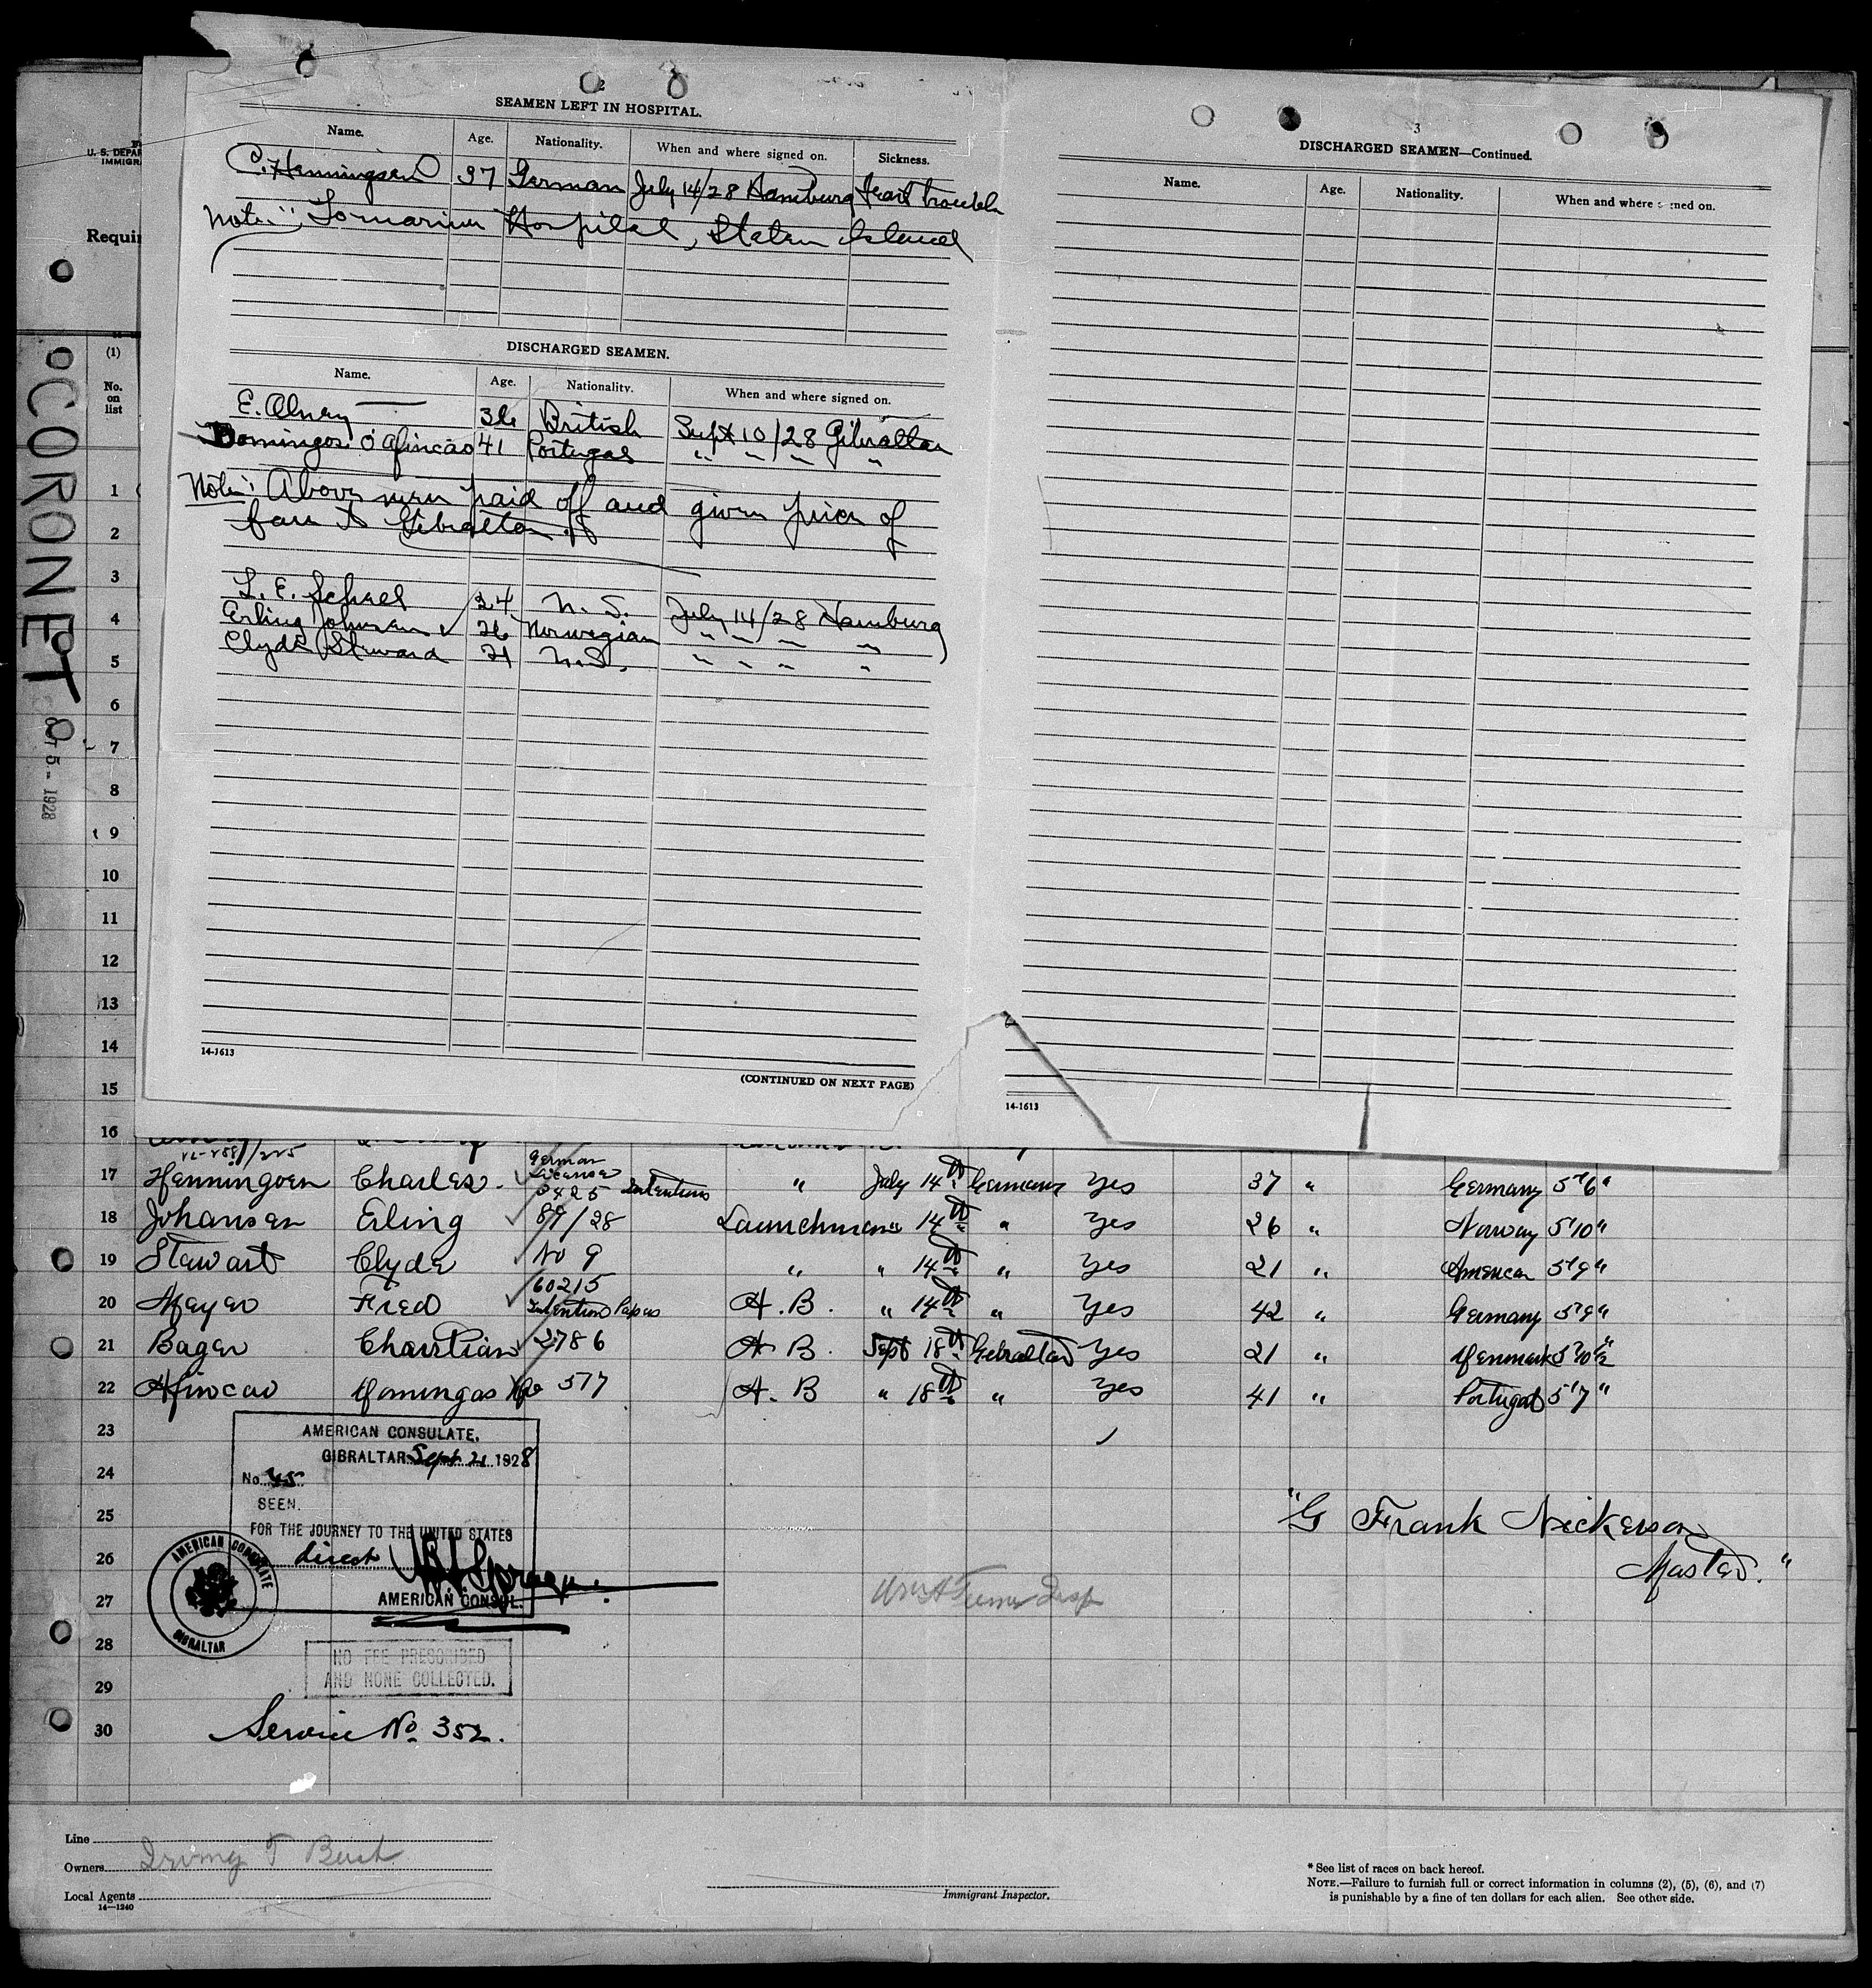 2
SEAMEN LEFT IN HOSPITAL.
Name. Age. Nationality. When and where signed on. Sickness.
C. Henningsen 37 German July 14/28 Hamburg Heart trouble
Note: Hospital, Staten Island
DISCHARGED SEAMEN.
Name. Age. Nationality. When and where signed on.
E. 36 British Sept 10/28 Gibraltar
Domingos Afincao 41 Portugal " " " "
Note: Above men paid off and given price of
fare to Gibraltar.
L. E. Scheel 24 U. S. July 14/28 Hamburg
Erling Johnsen ✓ 26 Norwegian " " " "
Clyde Steward 21 U.S. " " " "
14-1613
(CONTINUED ON NEXT PAGE)
3
DISCHARGED SEAMEN—Continued.
Name. Age. Nationality. When and where signed on.
14-1613
U. S. DEPAR
IMMIGRA
Requir
CORONET
OCT 5- 1928
(1)
No.
on
list
1
2
3
4
5
6
7
8
9
10
11
12
13
14
15
16
17 Henningsen Charles German License 3425 Intentions " July 14th Germany Yes 37 " Germany 5'6"
18 Johansen Erling 89/28 Launchman " 14th " Yes 26 " Norway 5'10"
19 Stewart Clyde No 9 " " 14th " Yes 21 " American 5'9"
20 Meyer Fred 60215 Intention Papers A. B. " 14th " Yes 42 " Germany 5'9"
21 Bager Christian 2786 A B. Sept 18th Gibraltar Yes 21 " Denmark 5'10½"
22 Afincao Domingas No 577 A. B " 18th " Yes 41 " Portugal 5'7"
23
24
25
26
27
28
29
30
AMERICAN CONSULATE.
GIBRALTAR Sept 21 1928
No. 45
SEEN.
FOR THE JOURNEY TO THE UNITED STATES
direct
AMERICAN CONSUL.
AMERICAN CONSULATE
GIBRALTAR
NO FEE PRESCRIBED
AND NONE COLLECTED.
Service No. 352.
"G Frank Nickerson
Master."
Line
Owners Irving T Bush
Local Agents
14—1240
Immigrant Inspector.
* See list of races on back hereof.
NOTE.—Failure to furnish full or correct information in columns (2), (5), (6), and (7)
is punishable by a fine of ten dollars for each alien. See other side.